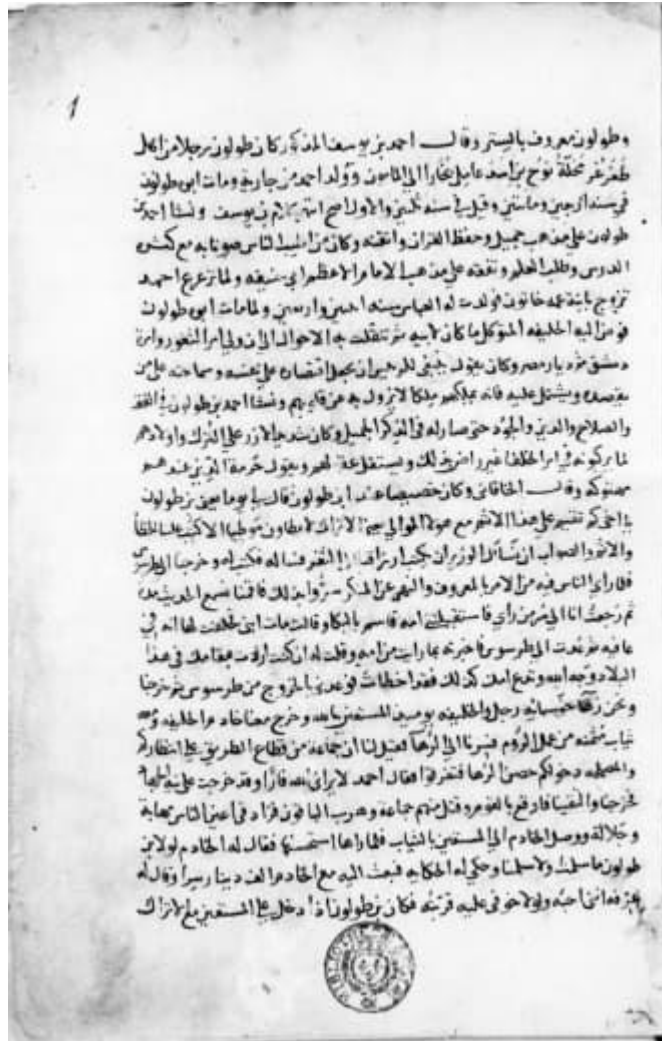 وطولون معروف بالستر وقال احمد بن يوسف المذكور كان طولون رجلا من اهل
طغزغز حمله نوح بن اسد عامل بخارا الي المامون وولد احمد من جارية ومات ابن طولون
في سنة اربعين ومايتين وقيل في سنة ثلثين والاول اصح بن يوسف ونشا احمد بن
طولون علي مذهب جميل وحفظ القران واتقنه وكان من اطيب الناس صوتا به مع كثرة
الدرس وطلب العلم وتفقه علي مذهب الامام الاعظم ابي حنيفه ولما ترعرع احمد
تزوج بابنة عمه خاتون فولدت له العباس سنة اثنين واربعين ولما مات ابن طولون
فوض اليه الخليفه المتوكل ما كان لابيه ثم تنقلت به الاحوال الي ان ولي امرة الثغور وامرة
دمشق ثم ديار مصر وكان يقول ينبغي للرئيس ان يجعل اقتصاده علي نفسه وسماحته علي من
يقصده ويشتمل عليه فانه يملكهم ملكا لا يزول به عن قلوبهم ونشا احمد بن طولون في الفقه
والصلاح والدين والجود حتى صار له في الذكر الجميل وكان شديد الازر علي الترك واولادهم
لما يركبونه في امر الخلفا غير راض بذلك ويستقل عقلهم ويقول حرمة الدين عندهم
مهتوكه وقال الخاقاني وكان خصيصا عند ابن طولون قال لي يوما يعني بن طولون
يا اخي كم نقيم علي هذا الاثم مع هولا الموالي يعني الاتراك لا يطاون موطيا الا كتب علينا الخطأ
والاثم والصواب ان نسأل الوزير ان يكتب ارزاقنا الي الثغر فساله فكتب له وخرجنا الي طرسوس
فلما راي الناس فيه من الامر بالمعروف والنهي عن المنكر سروا بذلك فاقمنا نسمع الحديث مدة
ثم رجعت انا الي سر من راي فاستقبلتني امه قاسم بالبكا وقالت مات ابني فحلفت لها انه في
عافيه ثم عدت الي طرسوس فاخبرته بما رايت من امه وقلت له ان كنت اردت بمقامك في هذا
البلاد وجه الله وتدع امك كذلك فقد اخطات فوعدني بالخروج من طرسوس ثم خرجنا
ونحن زها خمسمايه رجل والخليفه يوميذ المستعين بالله وخرج معنا خادم الخليفه ومعه
ثياب مثمنه من عمل الروم فسرنا الي الرها فقيل لنا ان جماعة من قطاع الطريق علي انتظاركم
والمصلحه دخولكم حصن الرها حتى يتفرقوا فقال احمد لا يراني الله فارا وقد خرجت علي نية الجهاد
فخرجنا والتقينا فاوقع بالقوم وقتل منهم جماعة وهرب الباقون فزاد في اعين الناس مهابة
وجلالة ووصل الخادم الي المستعين بالثياب فلما راها استحسنها فقال له الخادم لولا بن
طولون ما سلمت ولا سلمنا وحكي له الحكايه فبعث اليه مع الخادم الف دينار سرا وقال له
عرفه انني احبه ولولا خوفي عليه قربته فكان بن طولون اذا دخل علي المستعين مع الاتراك